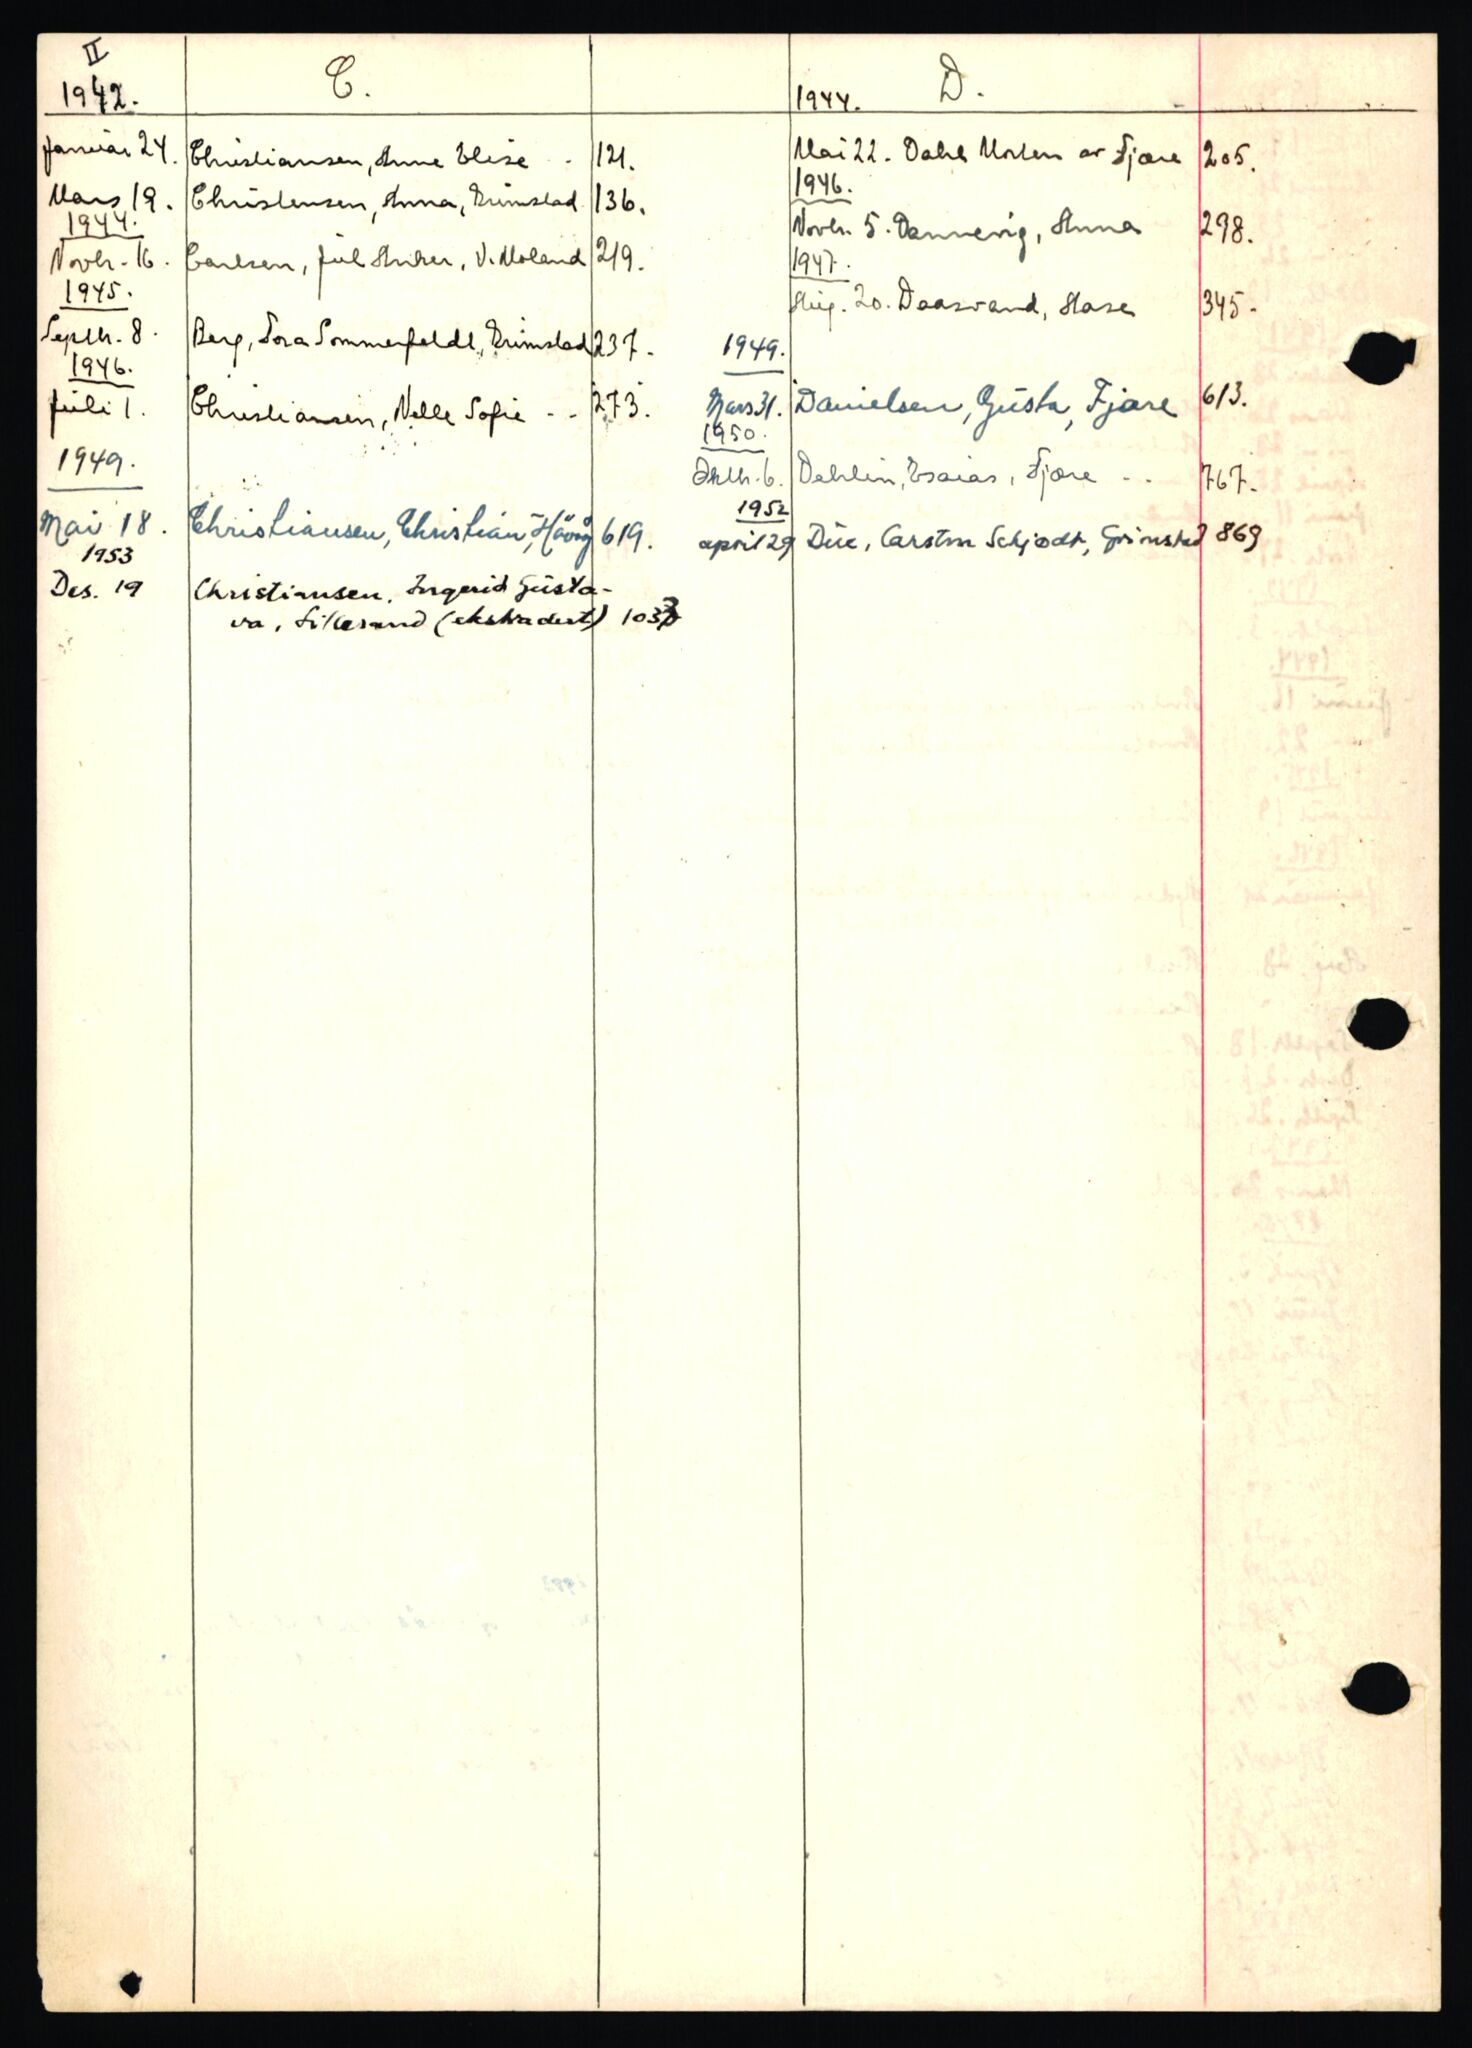 II
1942. C.
Januar 24. Christiansen, Anne Elise - 121.
Mars 19. Christensen, Anna, Grimstad 136.
1944.
Novbr. 16. Carlsen, Jul Anker, V. Moland 219.
1945.
Septbr. 8. Berg, Tora Sommerfeldt, Grimstad 237.
1946.
Juli 1. Christiansen, Nelle Sofie - - 273.
1949.
Mai 18. Christiansen, Christian, Håvåg 619.
1953
Des. 19 Christiansen, Ingerid Gusta-
va, Lillesand (ekstradert) 1037
1944. D.
Mai 22. Dahl Morten av Fjære 205.
1946.
Novbr. 5. Dannevig, Anna 298.
1947.
Aug. 20. Daasvand, Aase 345.
1949.
Mars 31. Danielsen, Gusta, Fjære 613.
1950.
Oktb. 6. Dahlin, Esaias, Fjære - - 767.
1952
april 29 Due, Carsten Schjødt, Grimstad 869